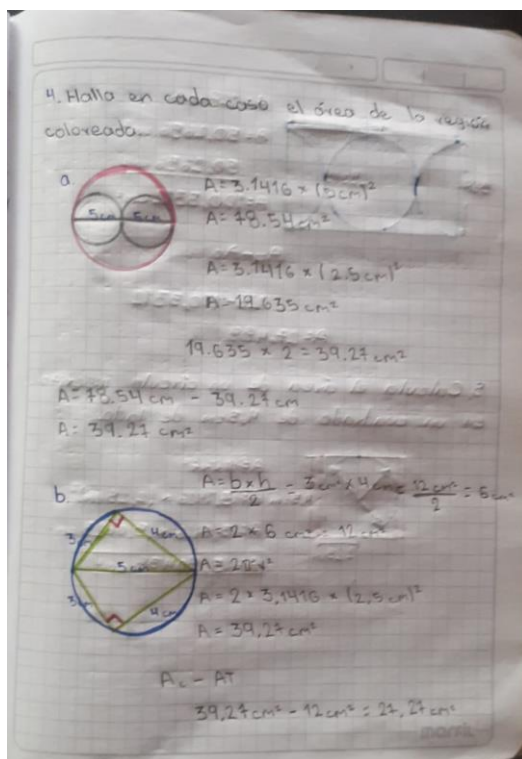 4. Halla en cada caso el área de la región
coloreada.
a
5cm 5cm
A = 3.1416 × (5cm)²
A = 78.54cm²
A = 3.1416 × (2.5cm)²
A = 19.635 cm²
19.635 × 2 = 39.27 cm²
A = 78.54 cm - 39.27 cm
A = 39.27 cm²
b.
A = b×h/2 = 3cm × 4cm = 12cm²/2 = 6cm²
3cm 4cm
5cm
3cm 4cm
A = 2 × 6 cm² = 12 cm²
A = 2πr²
A = 2 × 3,1416 × (2,5cm)²
A = 39,27 cm²
Ac - AT
39,27cm² - 12cm² = 27,27cm²